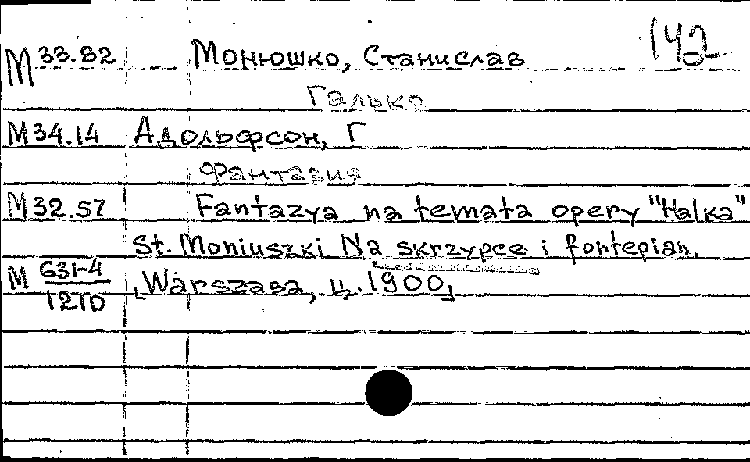 142
М 33.82 Монюшко, Станислав
Галько
М 34.14 Адольфсон, Г
Фантазия
М 32.57 Fantazya na temata opery "Halka"
St. Moniuszki Na skrzypce i fortepian.
М 631-4/1210 [Warszawa, ц. 1900]